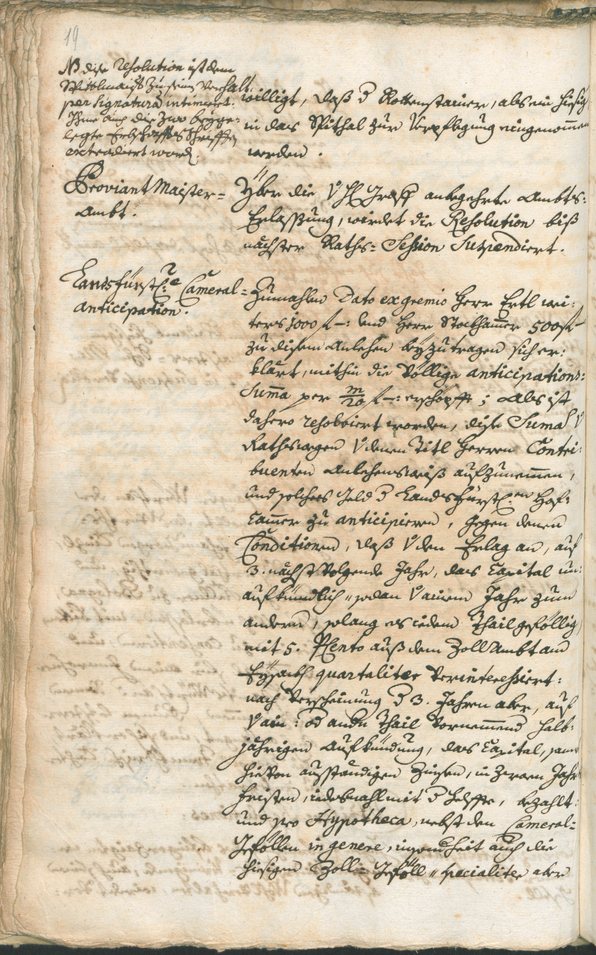 19.
NB dise resolution ist dem
Wittlmaiß zu seinem Verhalt
per Signatura intimiert.
Ihme auch die zwo beyge-
legte Schrifften
extradiert word:
williget, daß d Rottenstainer, als ein hiesig
in das Spithal zur Verpflegung eingenommen
werden.
Proviant Maister-
Ambt.
Yber die V H Graff anbegehrte Ambts-
Erlassung, würdet die Resolution biß
nächster Raths-Session suspendiert.
Landtsfürstl: Cameral-
anticipation.
Zumahlen Dato ex gremio Herr Ertl wei-
ters 1000 f –: und Herr Stockhamer 500 f
zu disem Anlehen beyzutragen sich er-
klärt, mithin die völlige anticipations-
Summa per m/20 f –: erschöpfft; Als ist
dahero resolviert worden, dise Suma V
Rathswegen V denen Titl Herren Contri-
buenten anlehensweiß aufzunemmen,
und solches Geld d Landtsfürstl:en Hof-
Camer zu anticipieren, gegen denen
Conditionen, daß V den Erlag an, auf
3. nächst volgende Jahr, das Capital un-
aufkündlich, sodan V ainem Jahr zum
anderen, solang es iedem Thail gefällig,
mit 5. PCento auß dem Zoll Ambt am
quartaliter verinteressiert:
nach Verscheinung d 3. Jahren aber, auf
V ain: od andern Thail vornemmend halb-
jährigen Aufkündung, das Capital, sambt
hievon ausständigen Zinsen, in zwayen Jahrs
Fristen, iedesmahl mit d Helffte, bezahlt:
und pro Hypotheca, nebst den Cameral-
Geföllen in genere, ingesambt auch die
hiesigen Zoll-Geföll specialiter aber